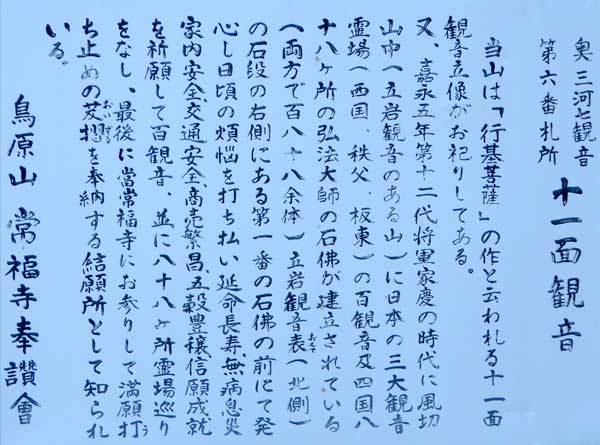 奥三河七観音
第六番札所
十一面観音
当山は「行基菩薩」の作と云われる十一面
観音立像がお祀りしてある。
又、嘉永五年第十二代将軍家慶の時代に風切
山中(五岩観音のある山)に日本の三大観音
霊場(西国、秩父、板東)の百観音及四国八
十八ヶ所の弘法大師の石佛が建立されている
(両方で百八十八余体)立岩観音表(北側)
の石段の右側にある第一番の石佛の前にて発
心し日頃の煩悩を打ち払い延命長寿、無病息災
家内安全、交通安全、商売繁昌、五穀豊穣、信願成就
を祈願して百観音、並に八十八ヶ所霊場巡り
をなし、最後に當常福寺にお参りして満願打
ち止めの芨摺を奉納する結願所として知られ
いる。
鳥原山 常福寺奉讃會